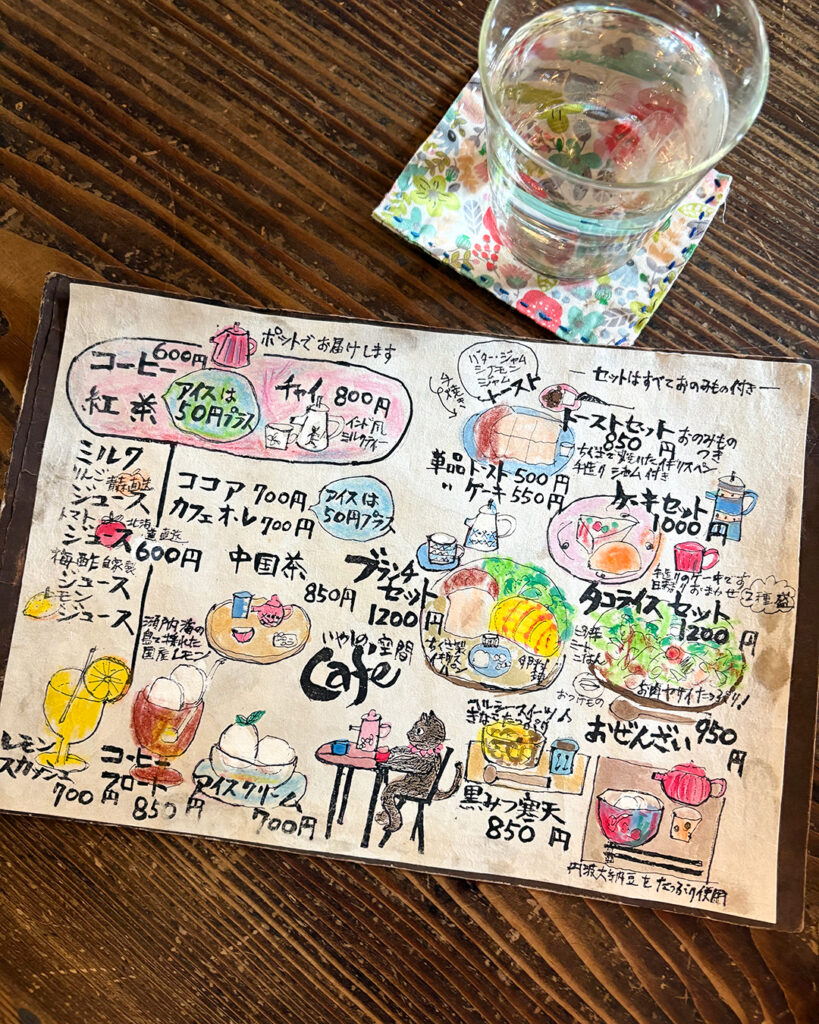 ポットでお届けします
コーヒー 600円
紅茶
アイスは
50円プラス
チャイ 800円
インド風
ミルクティー
ミルク
りんご 青森直送
ジュース
トマト 北海道直送
ジュース
600円
梅酢 自家製
ジュース
レモン
ジュース
ココア 700円
カフェオ・レ 700円
アイスは
50円プラス
中国茶
850円
瀬戸内海の
島で採れた
国産レモン
レモン
スカッシュ
700円
コーヒー
フロート
850円
アイスクリーム
700円
いやしの空間
Cafe
バター・ジャム
シナモン
ジャム
手焼き
トースト
単品トースト 500円
〃 ケーキ 550円
セットはすべておのみもの付き
トーストセット
850円
おのみもの
つき
手造りジャム付き
ケーキセット
1000円
手造りのケーキです
日替り おまかせ
2種盛
ブランチ
セット
1200円
タコライスセット
1200円
ミート
ごはん
お肉ヤサイたっぷり!
おつけもの
ヘルシースイーツ
きなこたっぷり
黒みつ寒天
850円
おぜんざい 950円
丹波大納言をたっぷり使用